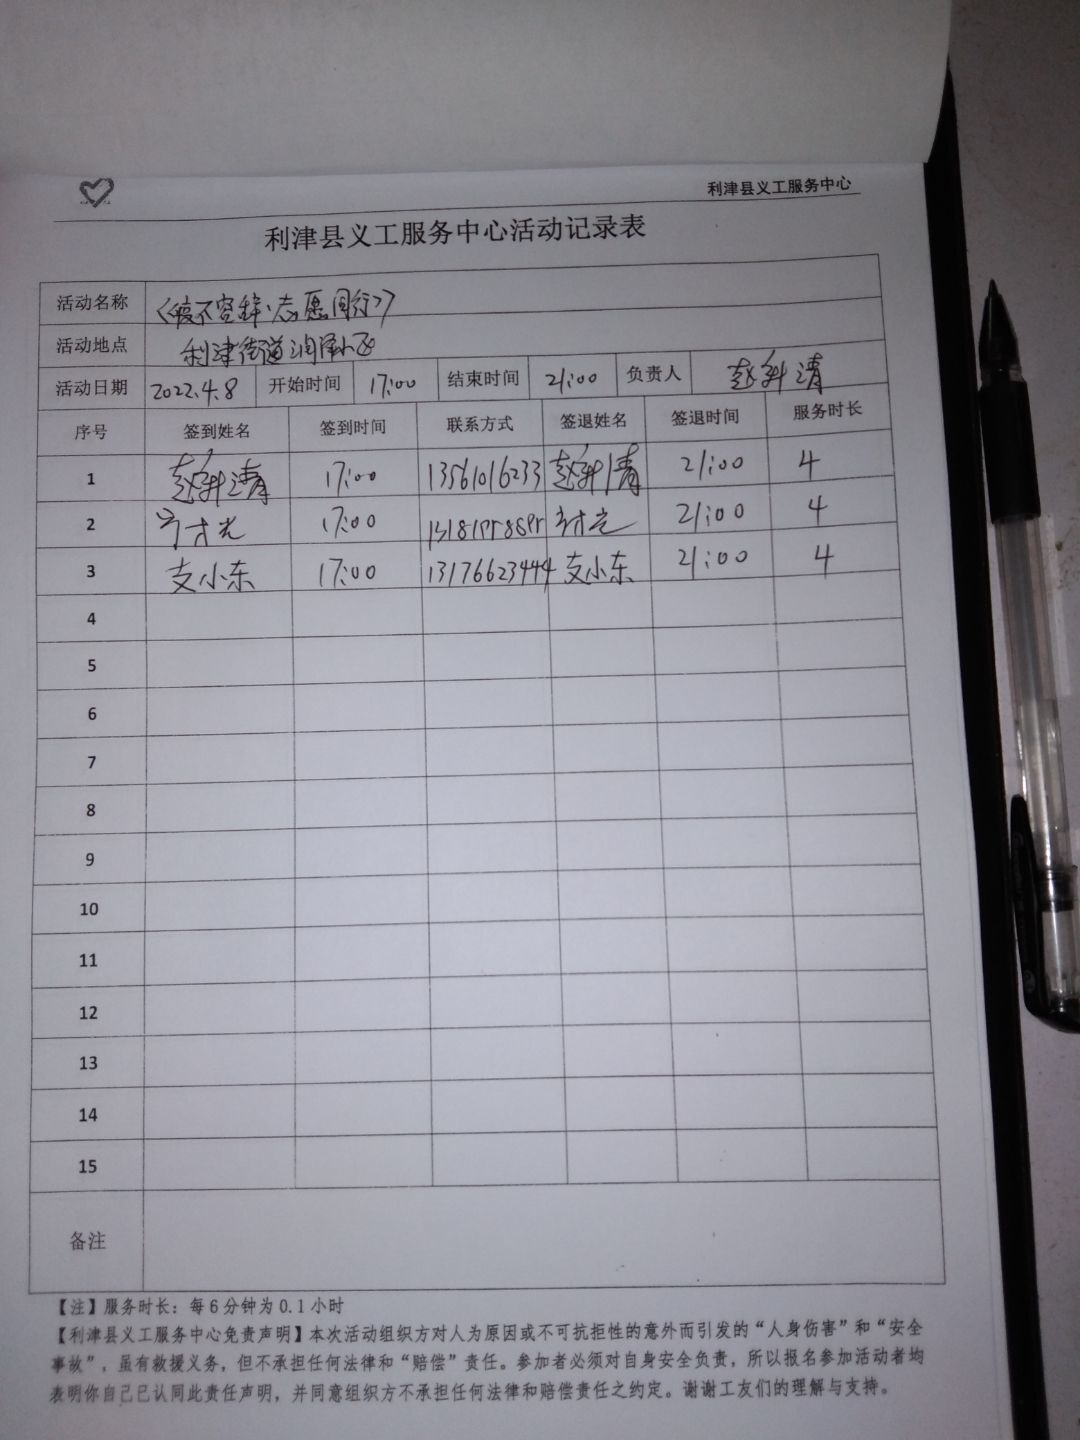 利津县义工服务中心
利津县义工服务中心活动记录表
活动名称 《疫不容辞·志愿同行》
活动地点 利津街道润泽小区
活动日期 2022.4.8 开始时间 17:00 结束时间 21:00 负责人 赵新清
序号 签到姓名 签到时间 联系方式 签退姓名 签退时间 服务时长
1 赵新清 17:00 13561016233 赵新清 21:00 4
2 17:00 21:00 4
3 支小东 17:00 13176623444 支小东 21:00 4
4
5
6
7
8
9
10
11
12
13
14
15
备注
【注】服务时长：每6分钟为0.1小时
【利津县义工服务中心免责声明】本次活动组织方对人为原因或不可抗拒性的意外而引发的“人身伤害”和“安全
事故”，虽有救援义务，但不承担任何法律和“赔偿”责任。参加者必须对自身安全负责，所以报名参加活动者均
表明你自己已认同此责任声明，并同意组织方不承担任何法律和赔偿责任之约定。谢谢工友们的理解与支持。